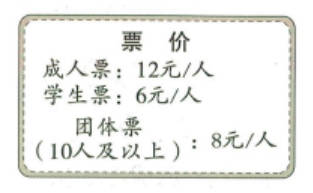 票 价
成人票：12元/人
学生票：6元/人
团体票
（10人及以上）：8元/人